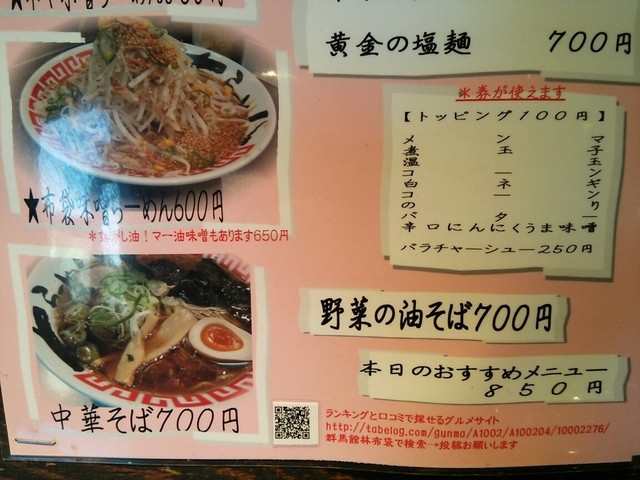 黄金の塩麺　700円
★布袋味噌らーめん600円
＊焦がし油！マー油味噌もあります650円
中華そば700円
氷券が使えます
【トッピング１００円】
メンマ
煮玉子
温玉
コーン
白ネギ
コーン
のり
バター
辛口にんにくうま味噌
バラチャーシュー250円
野菜の油そば700円
本日のおすすめメニュー
８５０円
ランキングと口コミで探せるグルメサイト
http://tabelog.com/gunma/A1002/A100204/10002276/
群馬館林布袋で検索→投稿お願いします